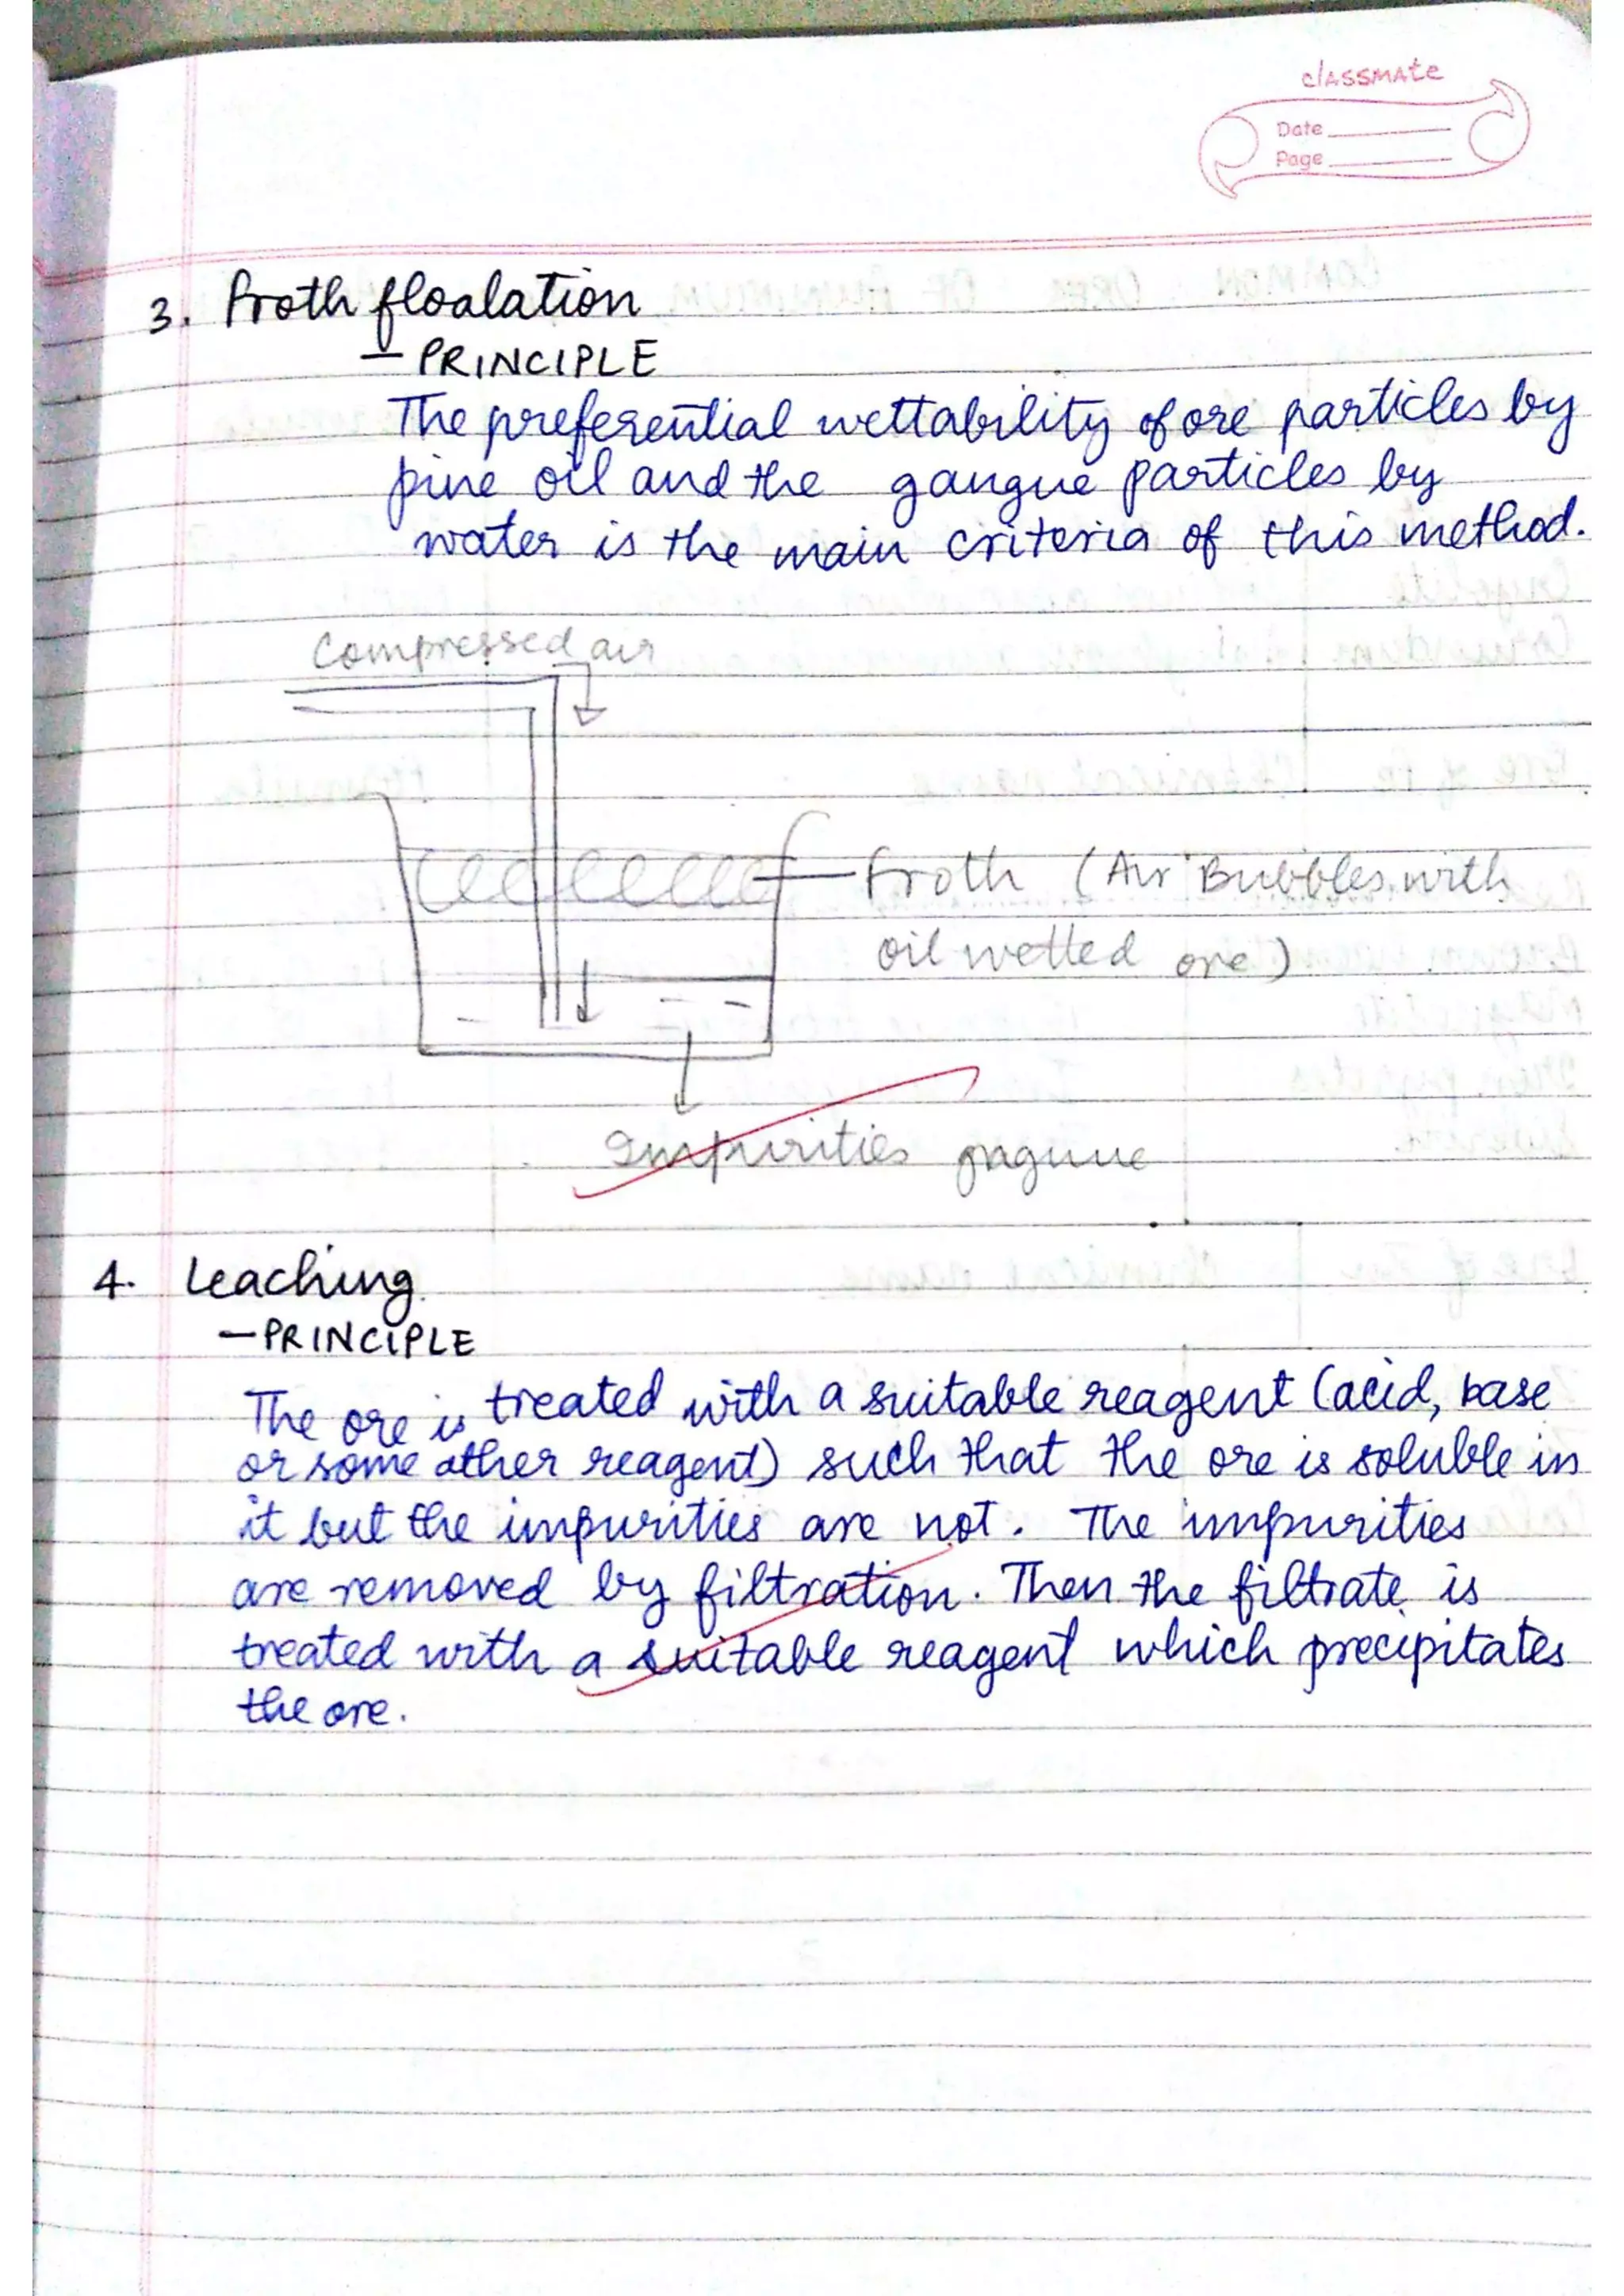 classmate
Date
Page
3. Froth floalation
— PRINCIPLE
The preferential wettability of ore particles by
pine oil and the gangue particles by
water is the main criteria of this method.
Compressed air
Froth (Air Bubbles with
oil wetted ore)
Impurities gagnue
4. Leaching
— PRINCIPLE
The ore is treated with a suitable reagent (acid, base
or some other reagent) such that the ore is soluble in
it but the impurities are not. The impurities
are removed by filtration. Then the filtrate is
treated with a suitable reagent which precipitates
the ore.